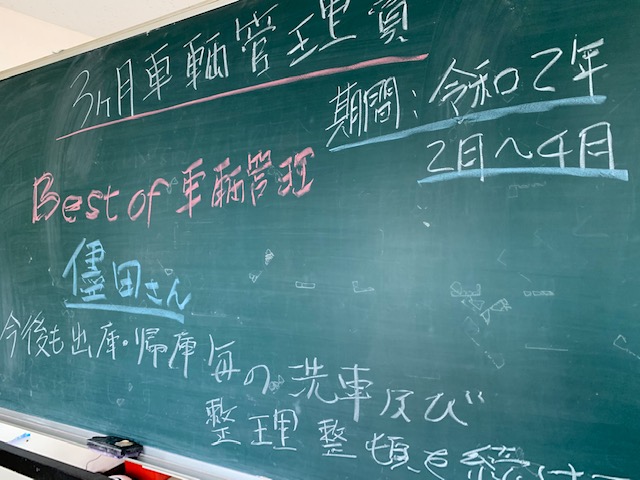 3ヶ月車輌管理賞
期間:令和2年
2月～4月
Best of 車輌管理
儘田さん
今後も出庫・帰庫毎の洗車及び
整理整頓を続け